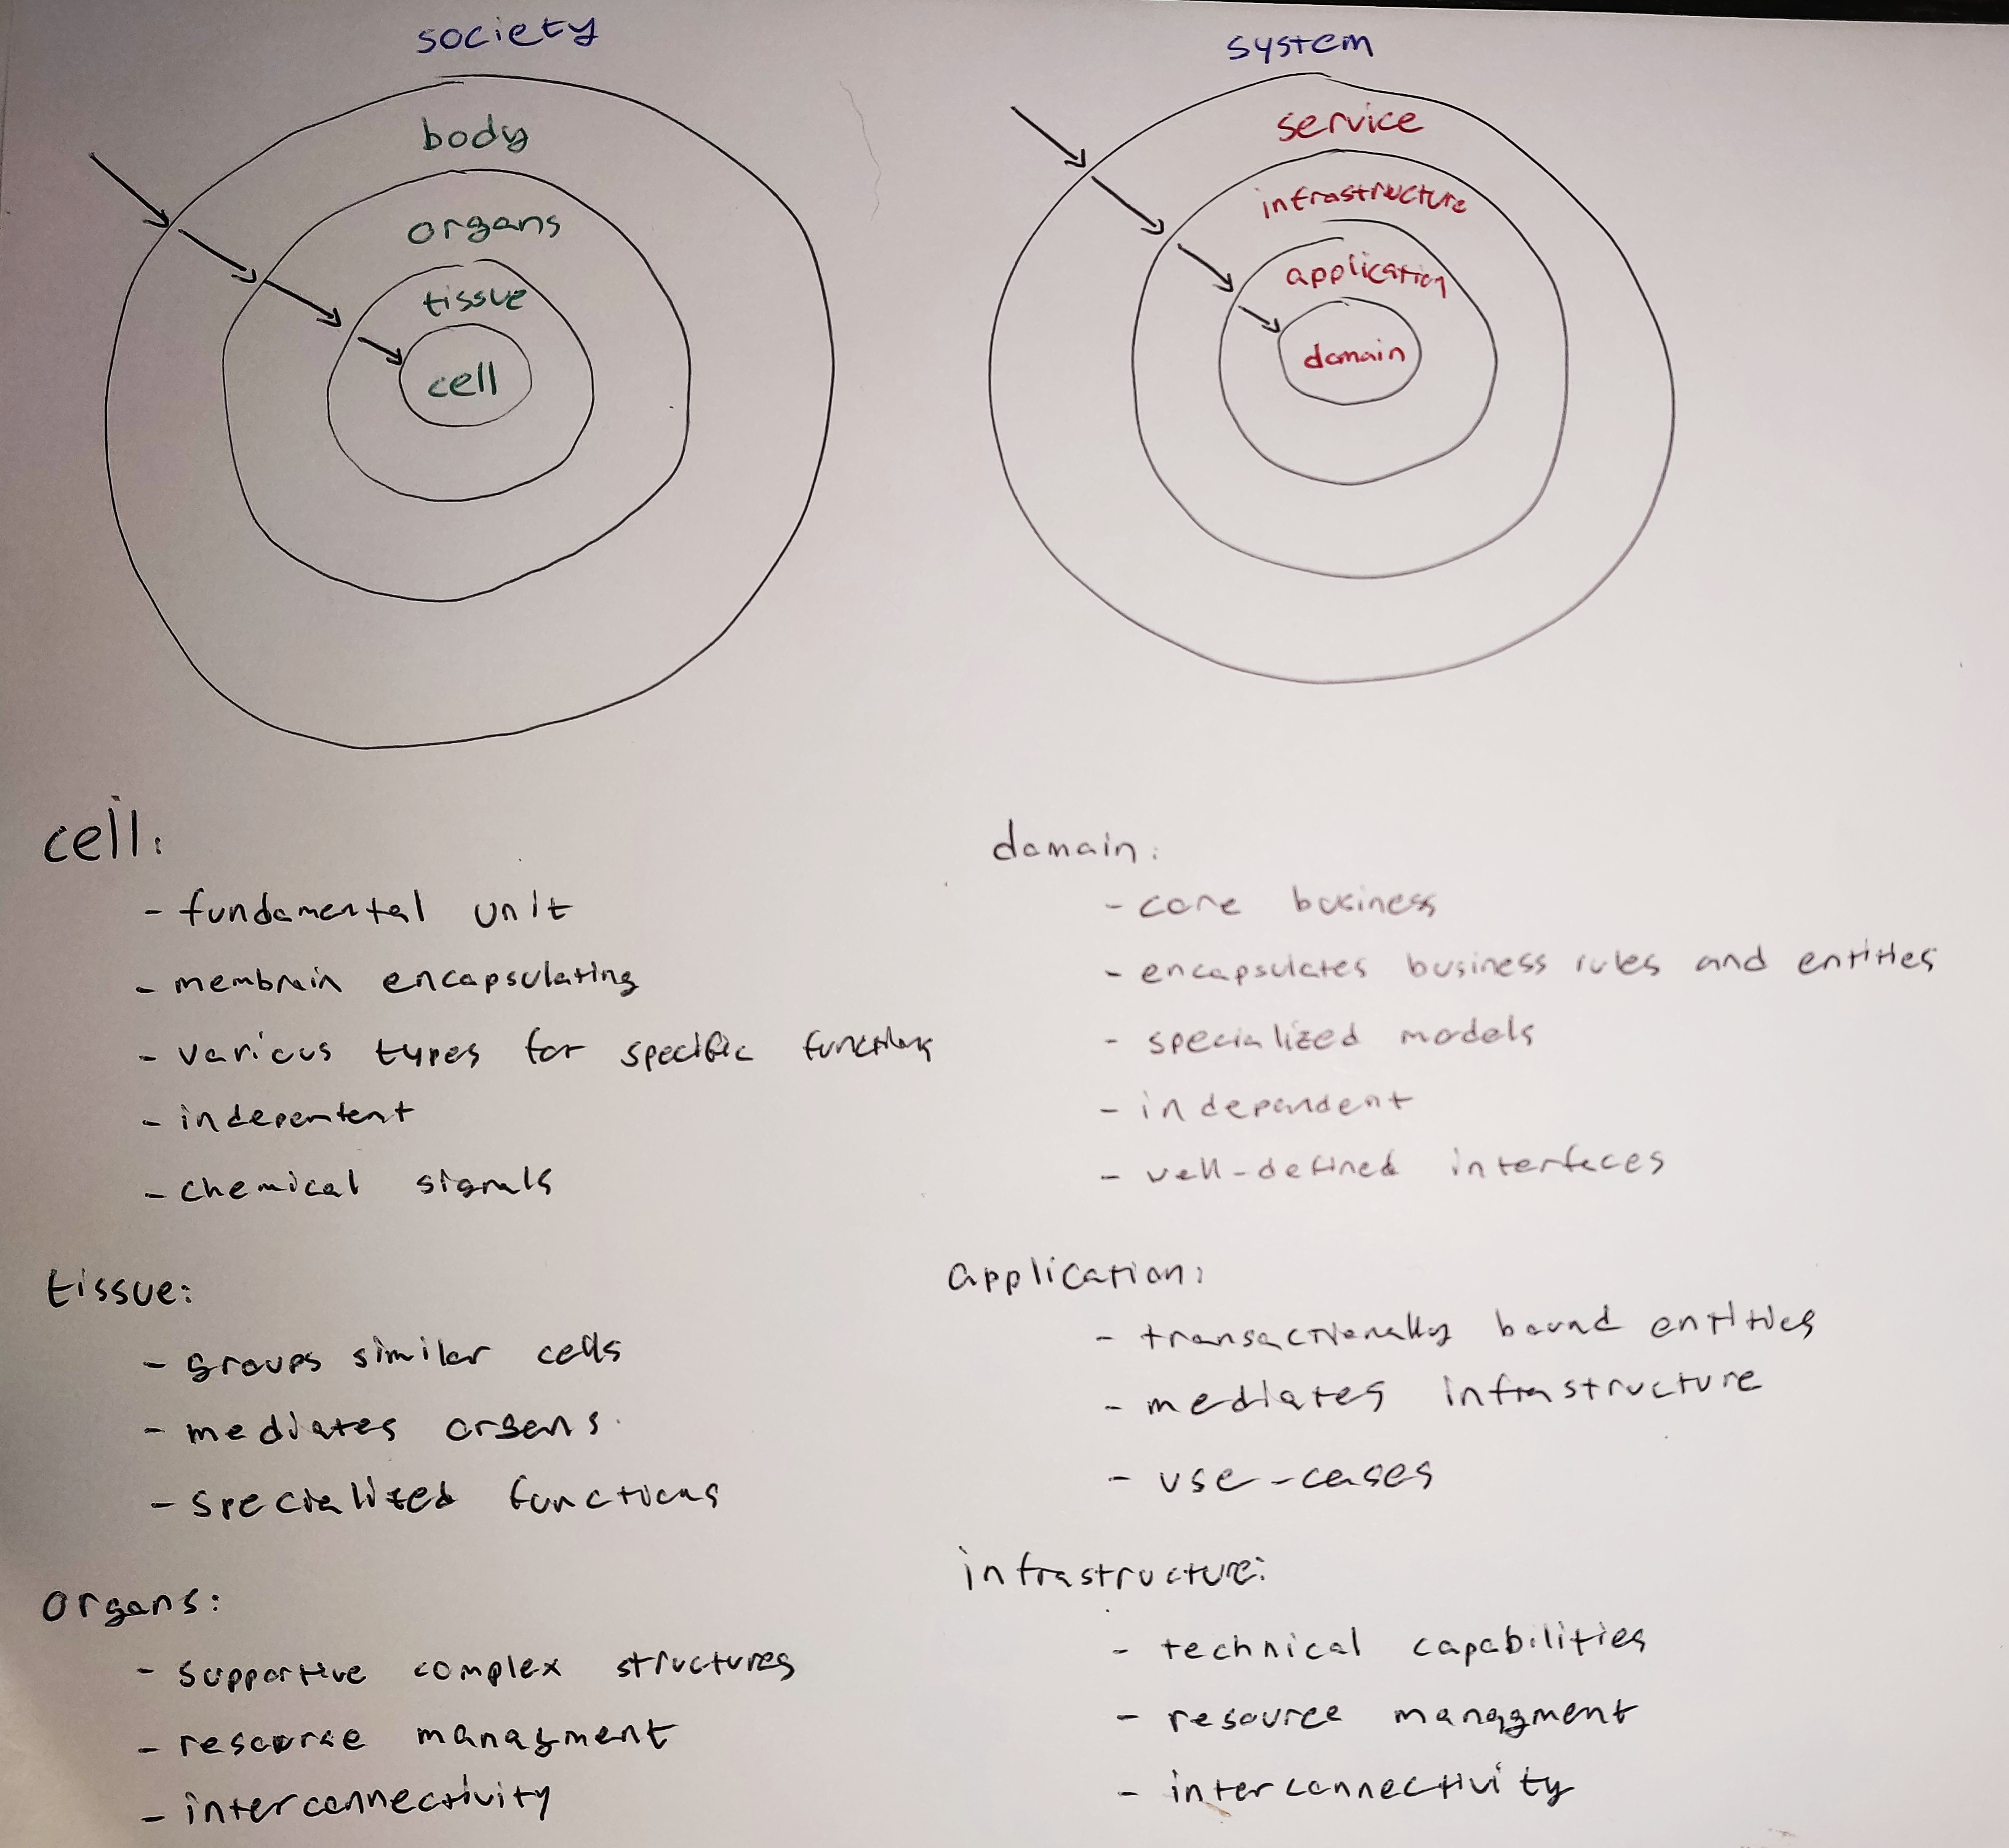 society
body
organs
tissue
cell
system
service
infrastructure
application
domain
cell:
- fundamental unit
- membrain encapsulating
- various types for specific functions
- indepentent
- chemical signals
tissue:
- groups similar cells
- mediates organs
- specialized functions
organs:
- supportive complex structures
- resource managment
- interconnectivity
domain:
- core business
- encapsulates business rules and entities
- specialized models
- independent
- well-defined interfaces
application:
- transactionally bound entities
- mediates infrastructure
- use-cases
infrastructure:
- technical capabilities
- resource managment
- interconnectivity